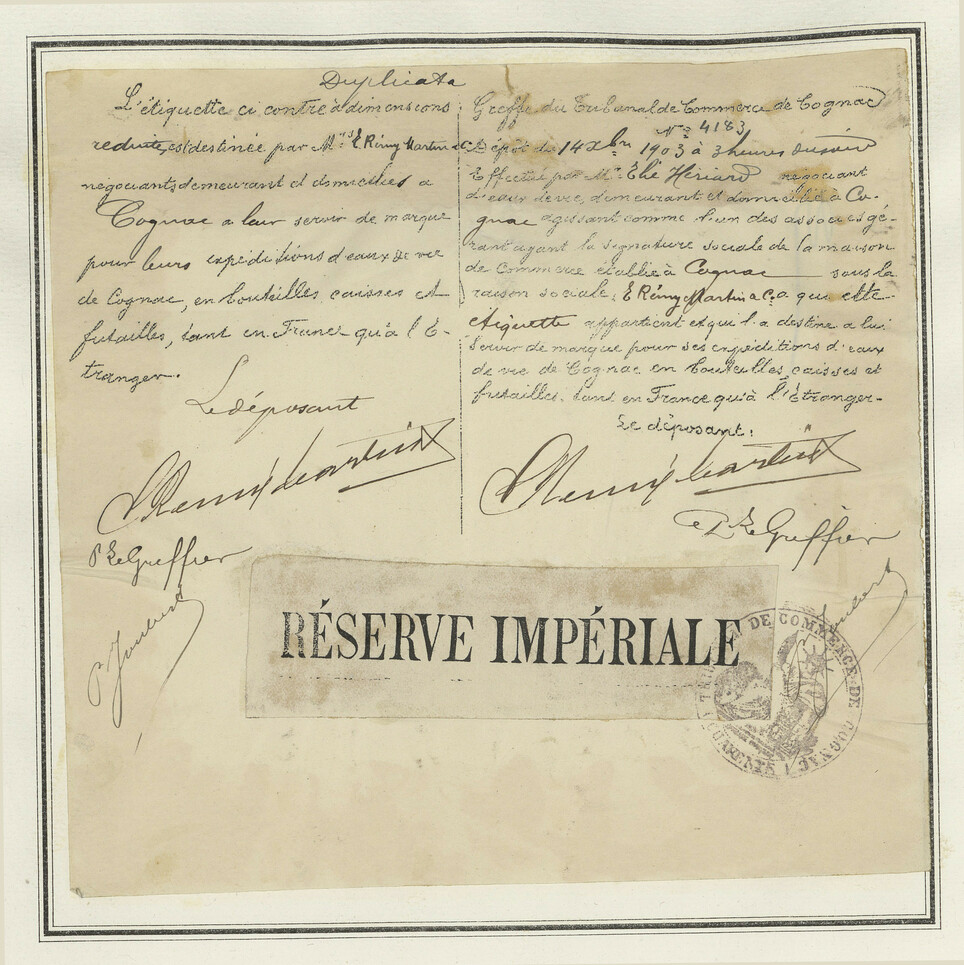 Duplicata
L'étiquette ci contre à dimensions
réduites, est destinée par Mrs E Rémy Martin & C°
négociants demeurant et domiciliés à
Cognac a leur servir de marque
pour leurs expéditions d'eaux de vie
de Cognac, en bouteilles caisses et
futailles, tant en France qu'à l'É-
tranger.
Le déposant
E Remy Martin
Pr Le Greffier
Greffe du Tribunal de Commerce de Cognac
N° 4183
Dépôt du 14 Xbre 1903 à 3 heures du soir
Effectué par Mr Elie Hériard négociant
d'eaux de vie, demeurant et domicilié à Co-
gnac agissant comme l'un des associés gé-
rant ayant la signature sociale de la maison
de Commerce établie à Cognac sous la
raison sociale: E Rémy Martin & C° a qui cette
étiquette appartient et qui l'a destine a lui
servir de marque pour ses expéditions d'eaux
de vie de Cognac en bouteilles, caisses et
futailles. tant en France qu'à l'Étranger-
Le déposant:
E Remy Martin
Pr Le Greffier
RÉSERVE IMPÉRIALE
TRIBUNAL DE COMMERCE DE COGNAC